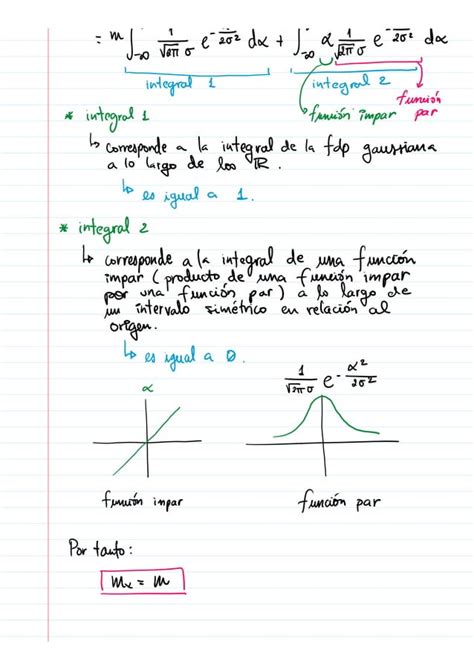 = m ∫_{-∞} 1/(√2π σ) e^{-/2σ²} dα + ∫_{-∞} α 1/(√2π σ) e^{-/2σ²} dα
integral 1 integral 2
función impar función par
* integral 1
↳ corresponde a la integral de la fdp gaussiana
a lo largo de los ℝ.
↳ es igual a 1.
* integral 2
↳ corresponde a la integral de una función
impar (producto de una función impar
por una función par) a lo largo de
un intervalo simétrico en relación al
origen.
↳ es igual a 0.
α
1/(√2π σ) e^{-α²/2σ²}
función impar
función par
Por tanto:
mₓ = m